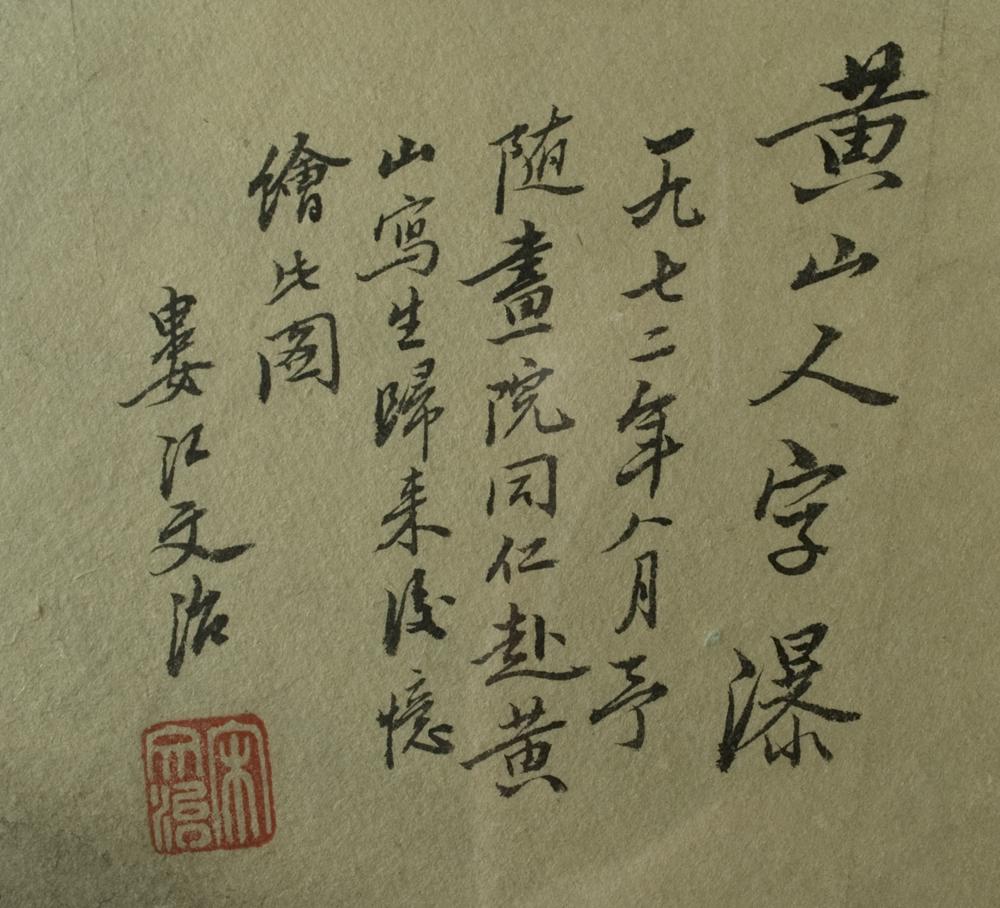 黄山人字瀑
一九七二年八月予
随畫院同仁赴黄
山寫生歸来後憶
繪此图
婁江文治
宋文治